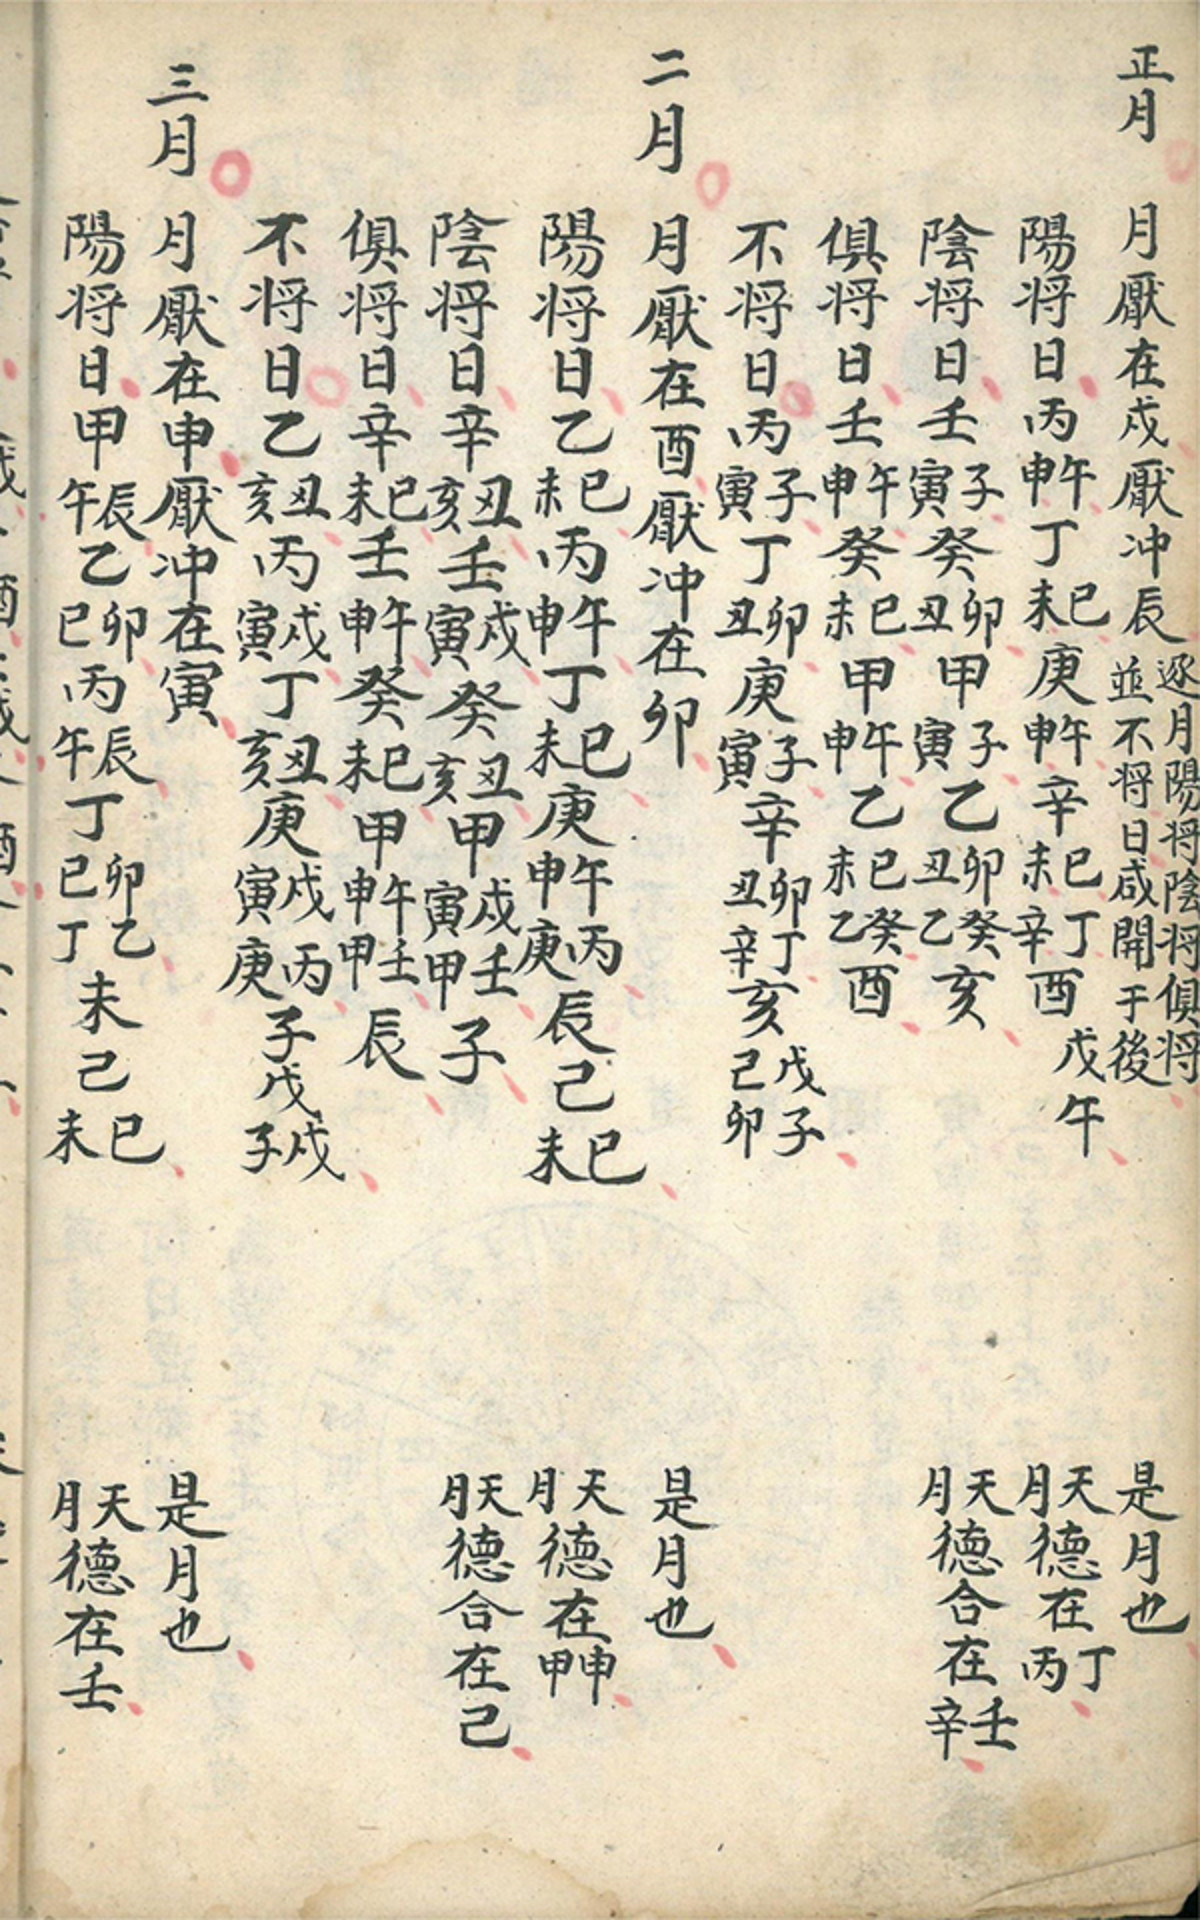 正月
月厭在戍厭冲辰逐月陽将陰将俱将並不将日咸開于後
是月也
陽将日丙午申丁巳未庚午申辛巳未丁辛酉戊午
天月德在丁丙
陰将日壬子寅癸卯丑甲子寅乙卯丑癸乙亥
天月德合在壬辛
俱将日壬午申癸巳未甲午申乙巳未癸乙酉
不将日丙子寅丁卯丑庚子寅辛卯丑丁辛亥戊子己卯
二月
月厭在酉厭冲在卯
是月也
陽将日乙巳未丙午申丁巳未庚午申丙庚辰己巳未
天月德在申甲
陰将日辛丑亥壬戍寅癸丑亥甲戍寅壬甲子
天月德合在己
俱将日辛巳未壬午申癸巳未甲午申壬甲辰
不将日乙丑亥丙戍寅丁丑亥庚戍寅丙庚子戊戍子
三月
月厭在申厭冲在寅
是月也
陽将日甲辰午乙卯巳丙辰午丁卯巳乙丁未己巳未
天月德在壬